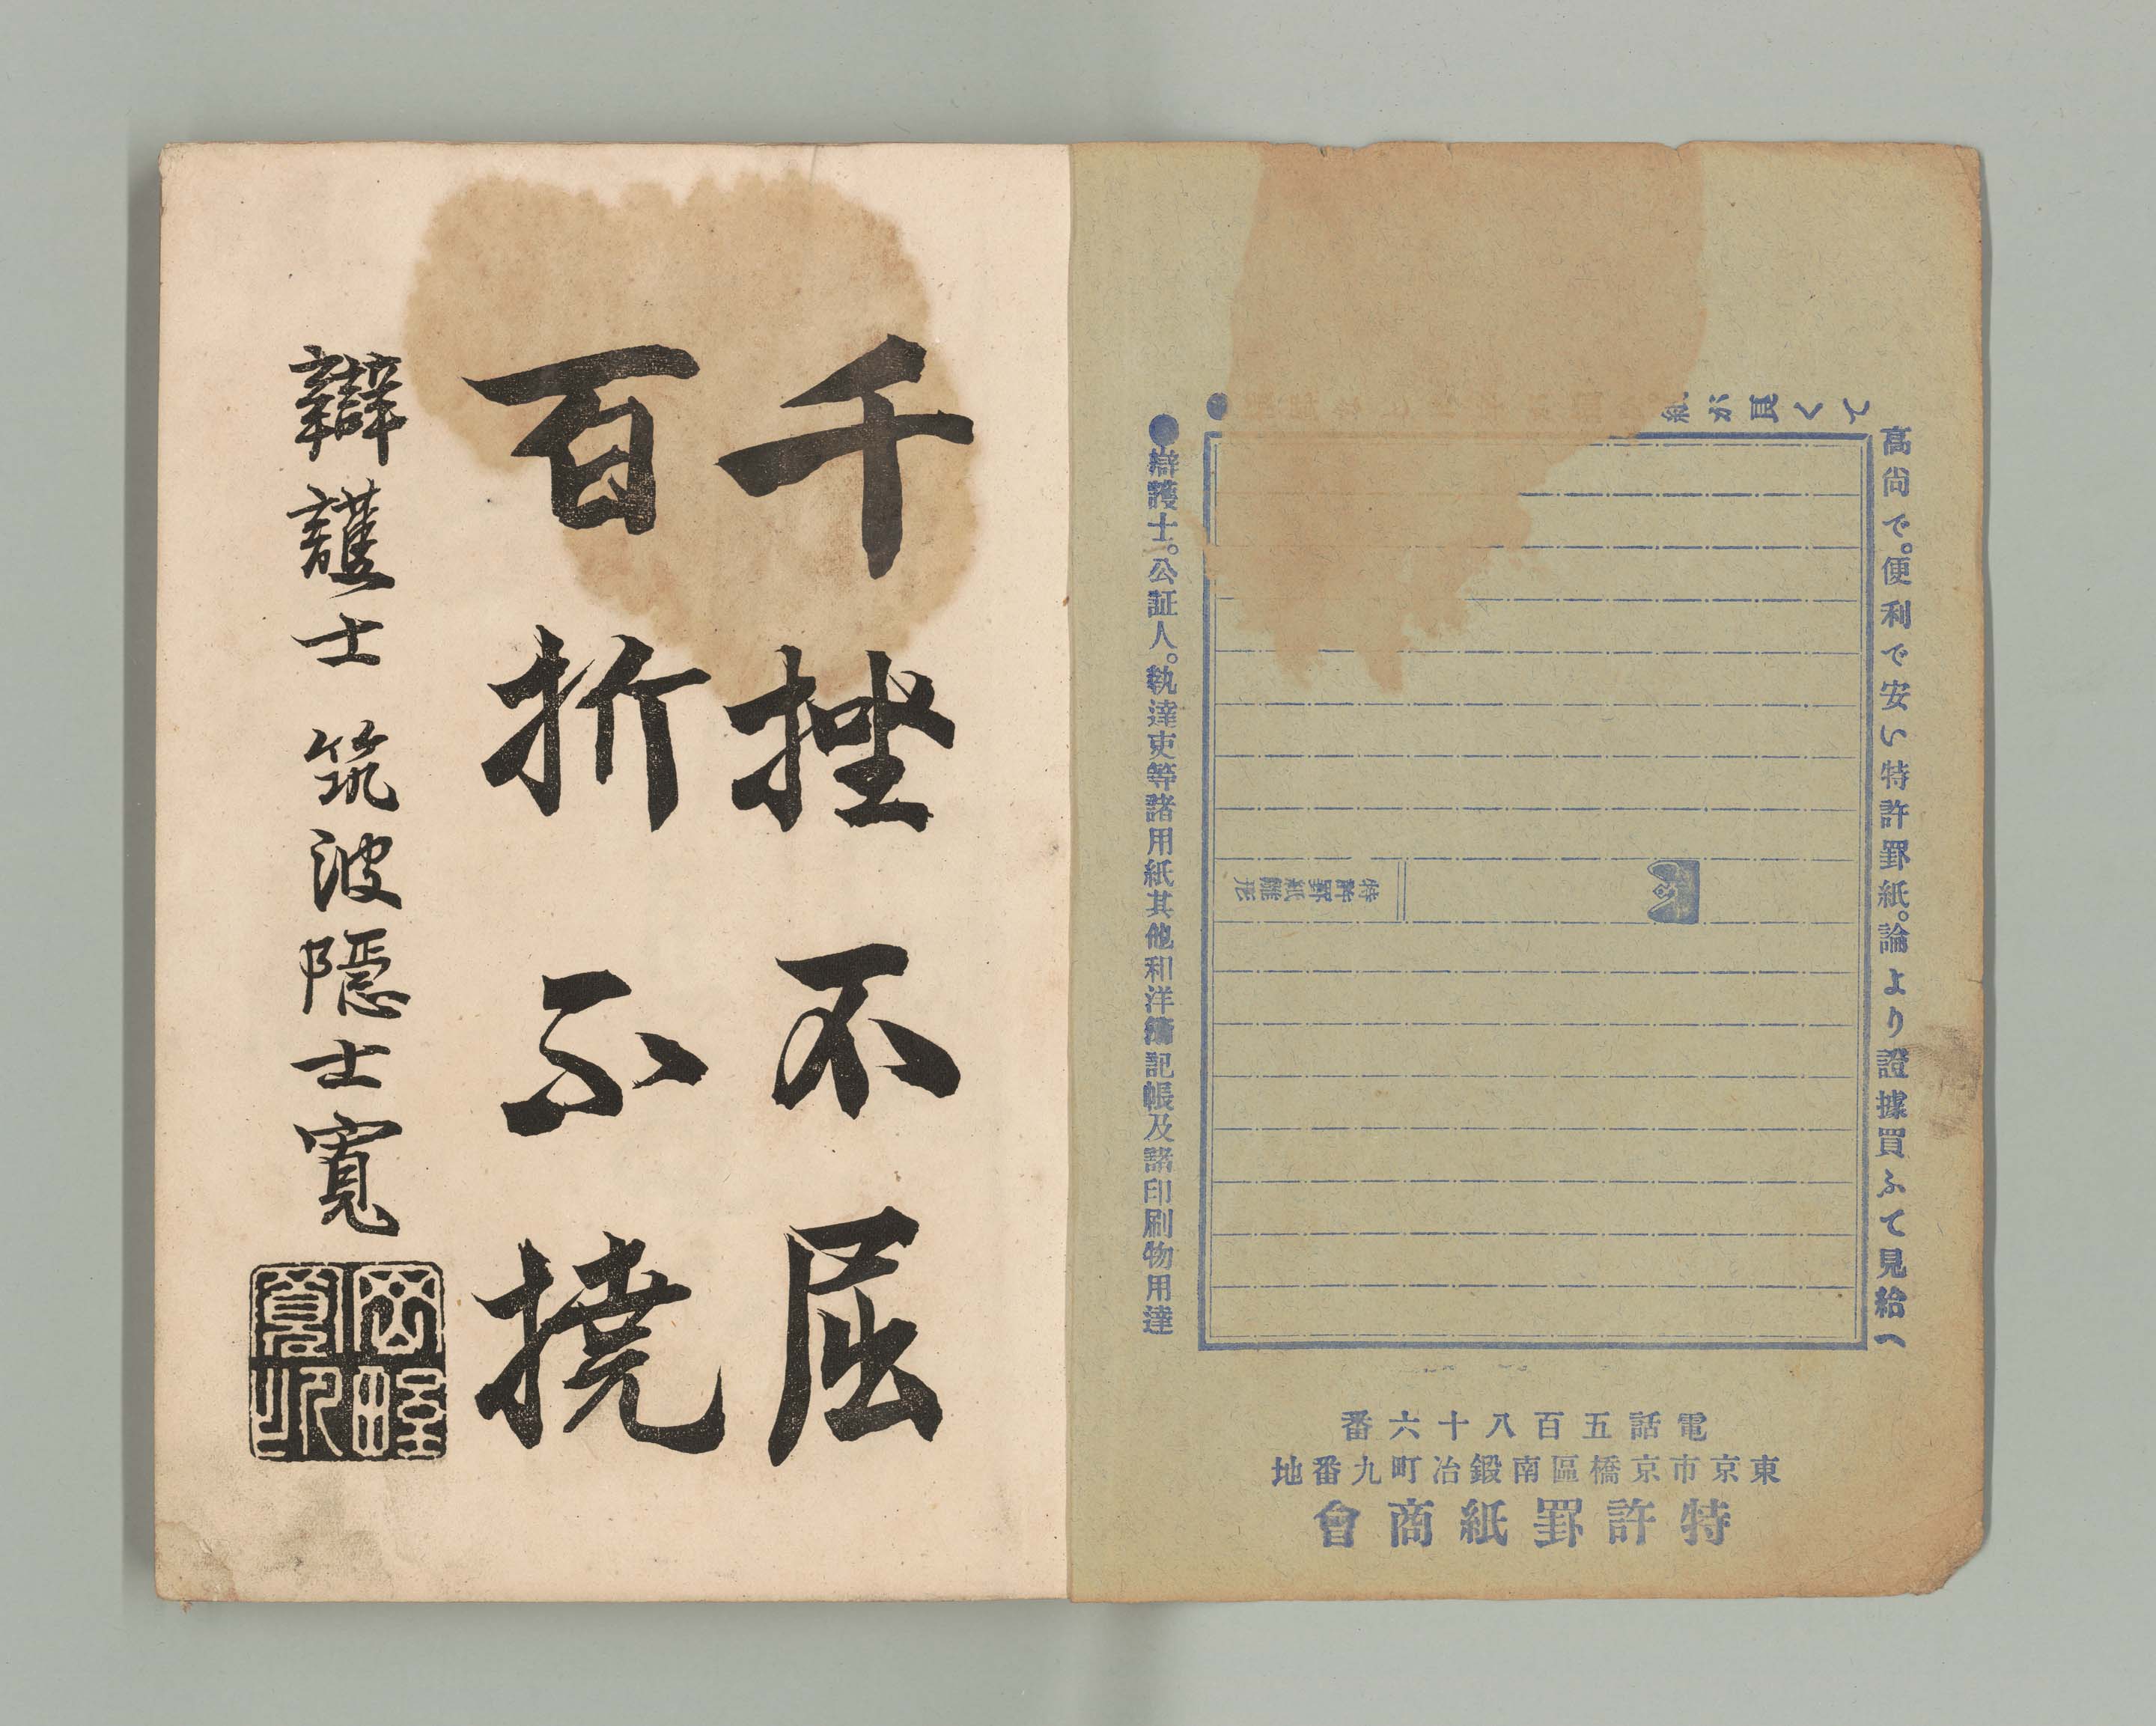 高尚で。便利で安い特許罫紙。論より證據買ふて見給へ
●辯護士。公証人。執達吏等諸用紙其他和洋簿記帳及諸印刷物用達
が良くて
特許罫紙雛形
電話五百八十六番
東京市京橋區南鍛冶町九番地
特許罫紙商會
千挫不屈
百折不撓
辯護士 筑波隱士寬